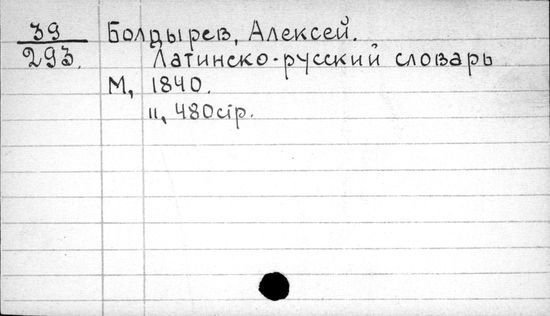 39
293.
Болдырев, Алексей.
Латинско-русский словарь
М, 1840.
II, 480стр.